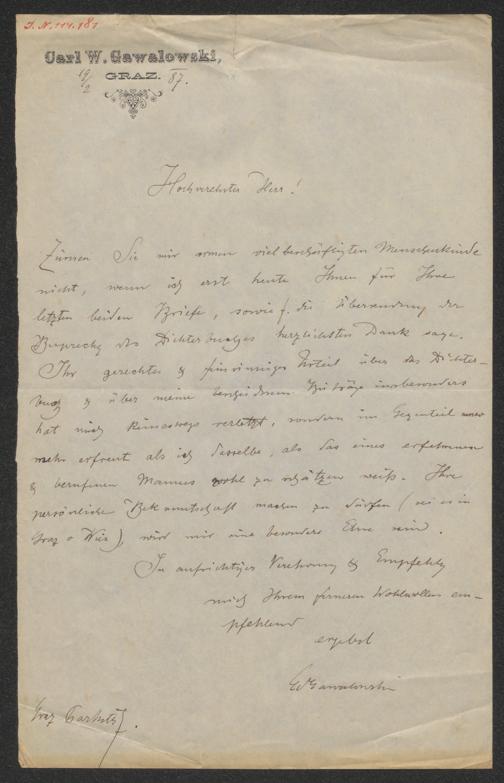 I. N. 111.181
Carl W. Gawalowski,
GRAZ.
19/2 87.
Hochverehrter Herr!
Zürnen Sie mir armen vielbeschäftigten Menschenkinde
nicht, wenn ich erst heute Ihnen für Ihre
letzten beiden Briefe, sowie f. die Übersendung der
des herzlichsten Dank sage.
Ihr gerechtes & feinsinniges Urteil über das Dichter-
& über meine bescheidenen Beiträge insbesonders
hat mich keineswegs verletzt, sondern im Gegenteil
mehr erfreut als ich dasselbe, als das eines erfahrenen
& berufenen Mannes wohl zu schätzen weiß. Ihre
persönliche Bekanntschaft machen zu dürfen (sei es in
Graz o Wien), wird mir eine besondere Ehre sein.
In aufrichtiger Verehrung &
mich Ihrem ferneren Wohlwollen em-
pfehlend
ergebst
Gawalowski
Graz